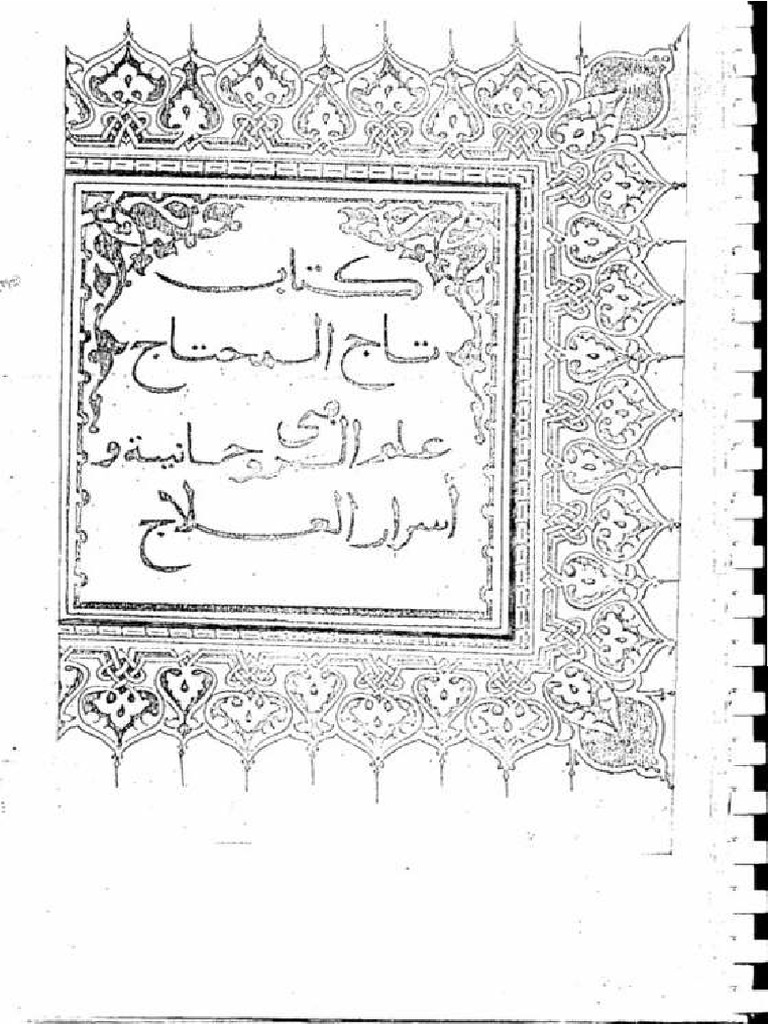 كتاب
تاج المحتاج
في
علم الروحانية و
أسرار العلاج